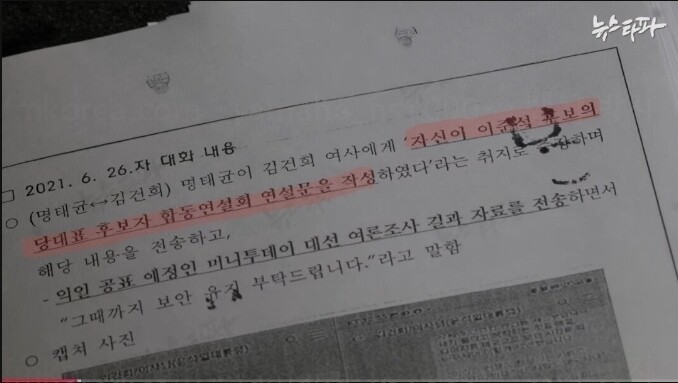 뉴스타파
□ 2021. 6. 26.자 대화 내용
○ (명태균↔김건희) 명태균이 김건희 여사에게 '자신이 이준석 후보의
당대표 후보자 합동연설회 연설문을 작성하였다'라는 취지로 하며
해당 내용을 전송하고,
- 익일 공표 예정인 미니투데이 대선 여론조사 결과 자료를 전송하면서
"그때까지 보안 유지 부탁드립니다."라고 말함
○ 캡처 사진